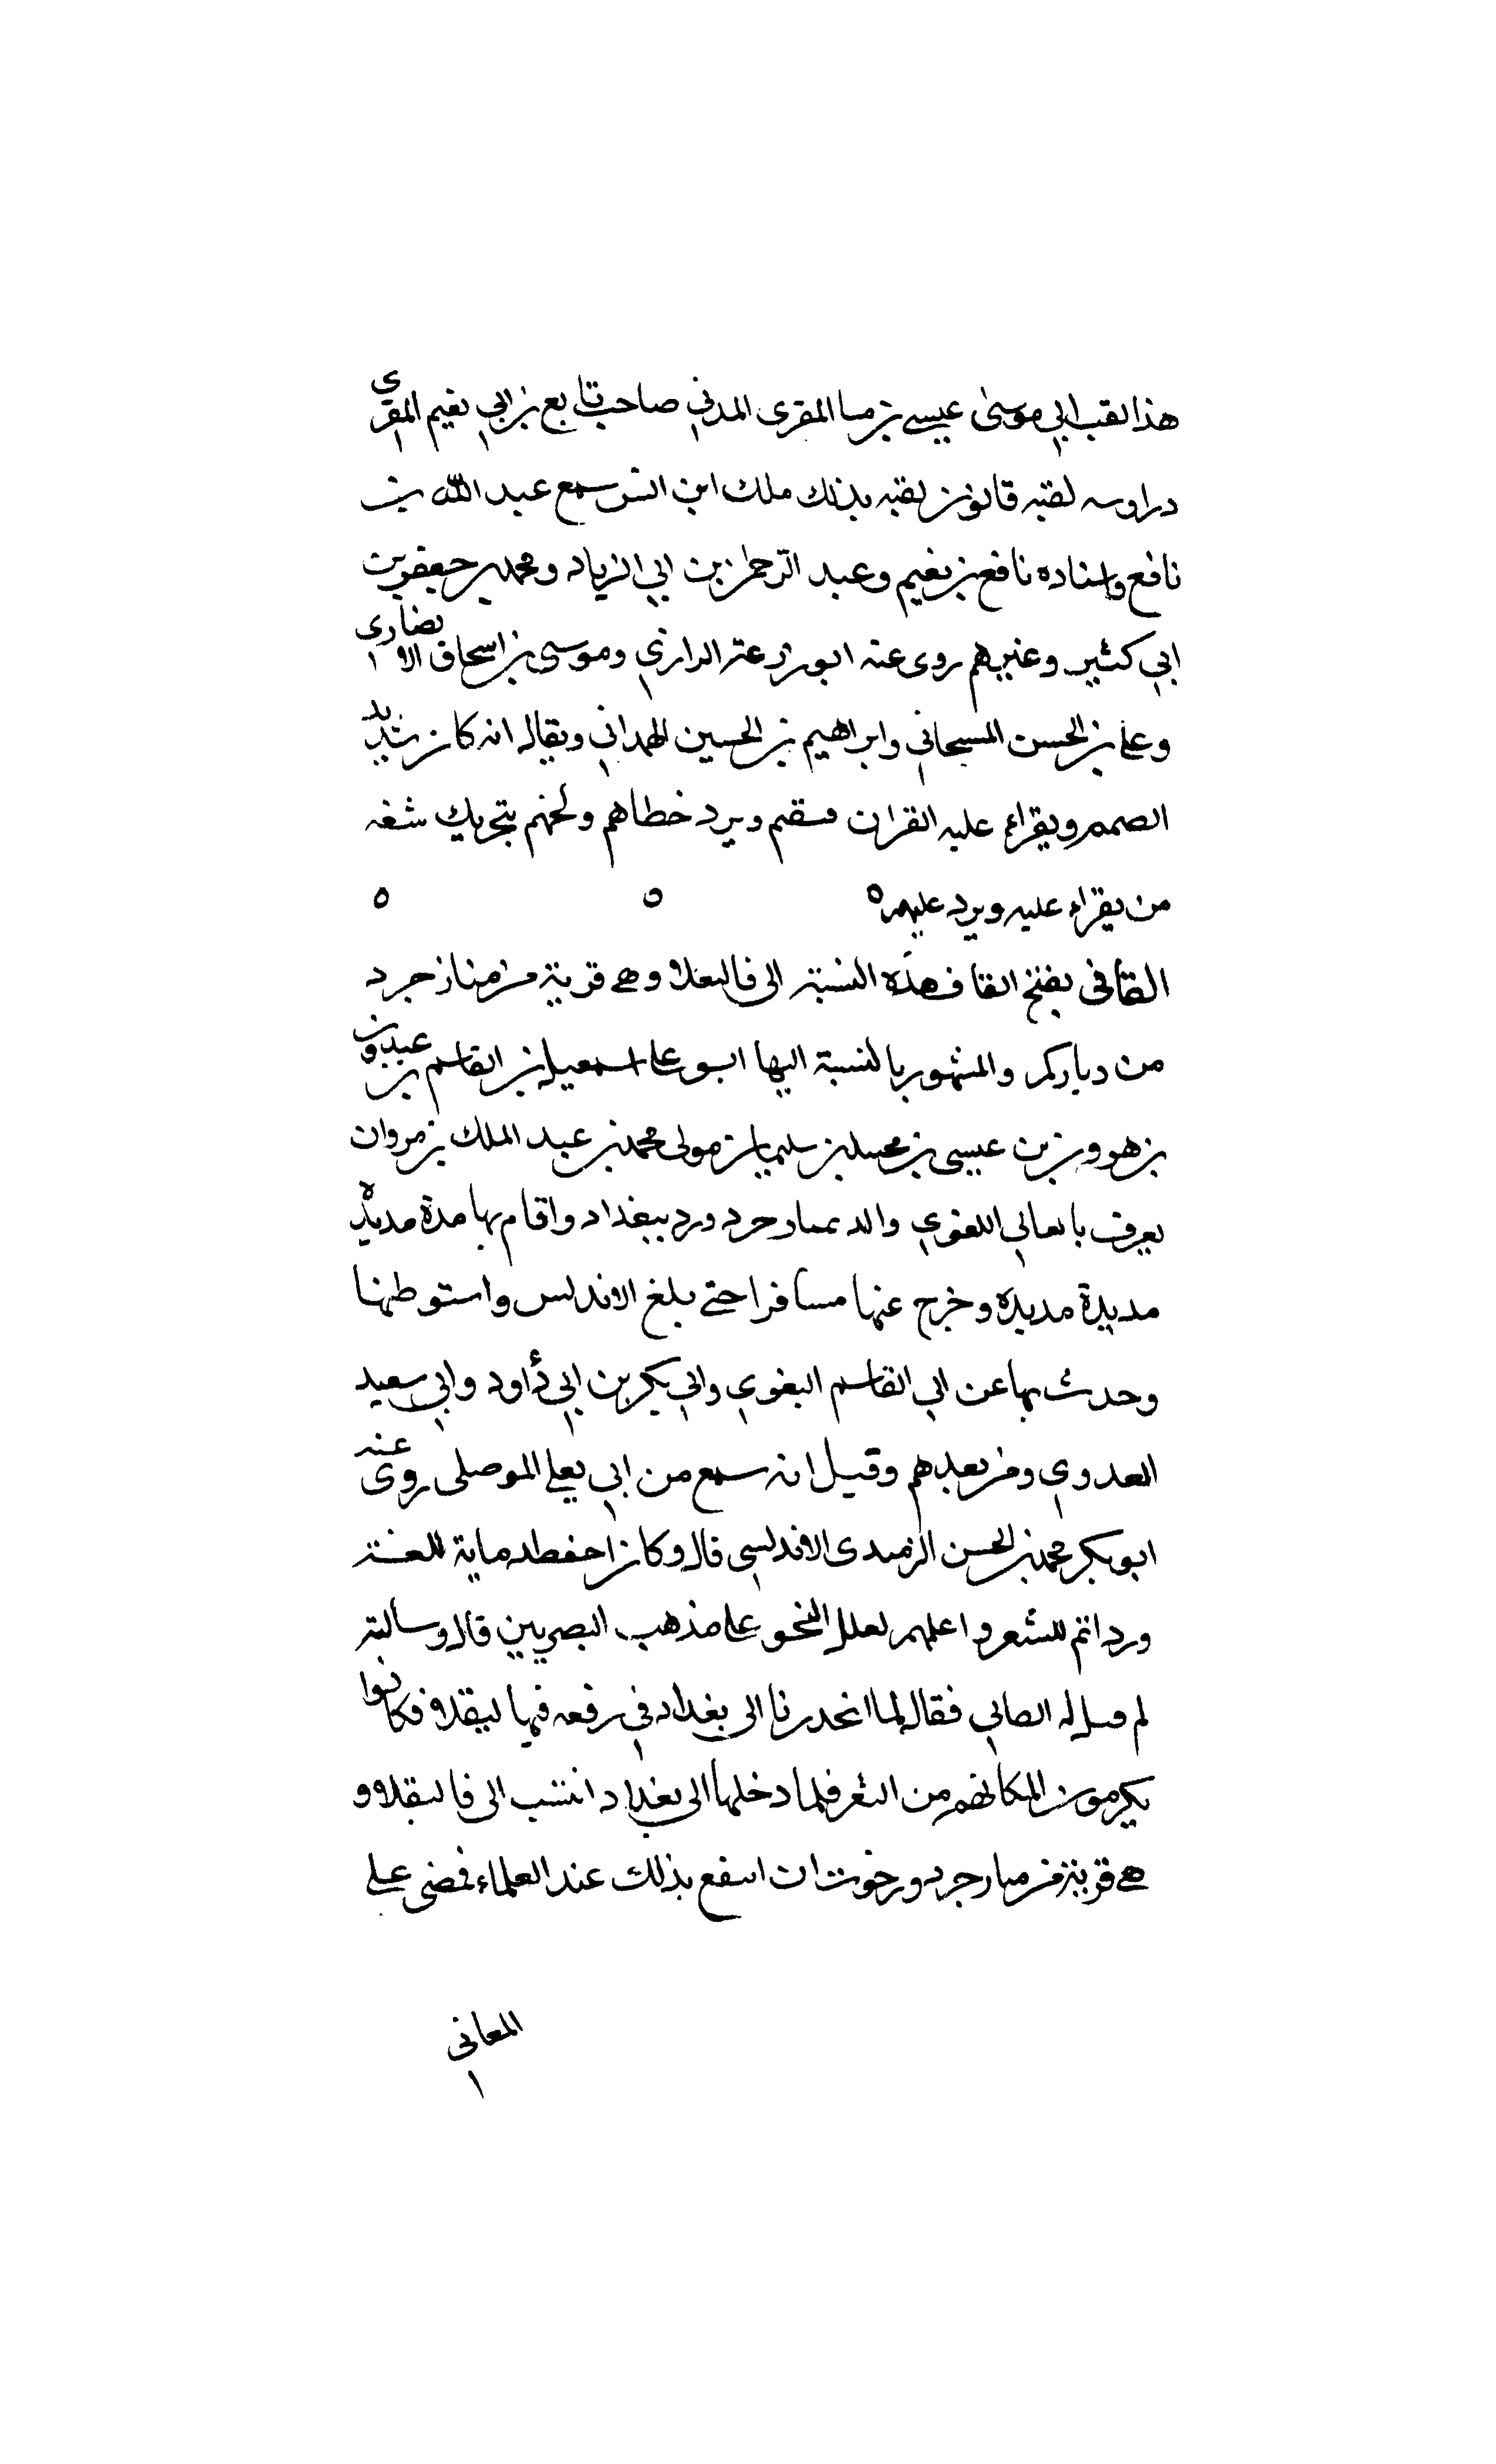 هذا لقب ابي موسى عيسى بن مينا المقرى المدني صاحب نافع بن ابي نعيم المقرى
لقبه قالون لقبه بذلك ملك ابن انس سمع عبد الله بن
نافع واستاده نافع بن نعيم وعبد الرحمن بن ابي الزياد ومحمد بن جعفر بن
ابي كثير وغيرهم روى عنه ابو زرعة الرازي وموسى بن اسحاق الانصاري
وعلي بن الحسن المسبحاني وابراهيم بن الحسين الهمداني ويقال انه كان شديد
الصمم ويقراء عليه القران ويرد خطاهم ولحنهم بتحريك شفه
من يقراء عليه ويرد عليهم ه ه ه
القافى بفتح القاف هذه النسبة الى فالىعلا وهى قرية من منازجرد
من ديار بكر والمشهور بالنسبة اليها ابو على اسمعيل بن القاسم بن عبدون
بن هرون بن عيسى بن محمد بن سليمان مولى محمد بن عبد الملك بن مروان
يعرف اللغوي ولد ورد ببغداد واقام بها مدة مديدة
مديدة مديدة وخرج عنها مسافرا حتى بلغ الاندلس واستوطنها
وحدث بها عن ابي القاسم البغوي وابي بكر بن ابي دأود وابي سعيد
العدوي ومن بعدهم وقيل انه سمع من ابي يعلى الموصلى روى عنه
ابو بكر محمد بن الحسن الزبيدى الاندلسي قال وكان احفظ للغة
للشعر واعلمهم لعلل النحو على مذهب البصريين قال وسالته
لم قيل له فقال لما انحدرنا الى بغداد في رفعه فيها فكانوا
يكرمون لمكانهم من الثغر فلما دخلها الى بغداد انتسب الى فالىقلا و
هى قرية من ورجوت ان انتفع بذلك عند العلماء فمضى على
المعاني